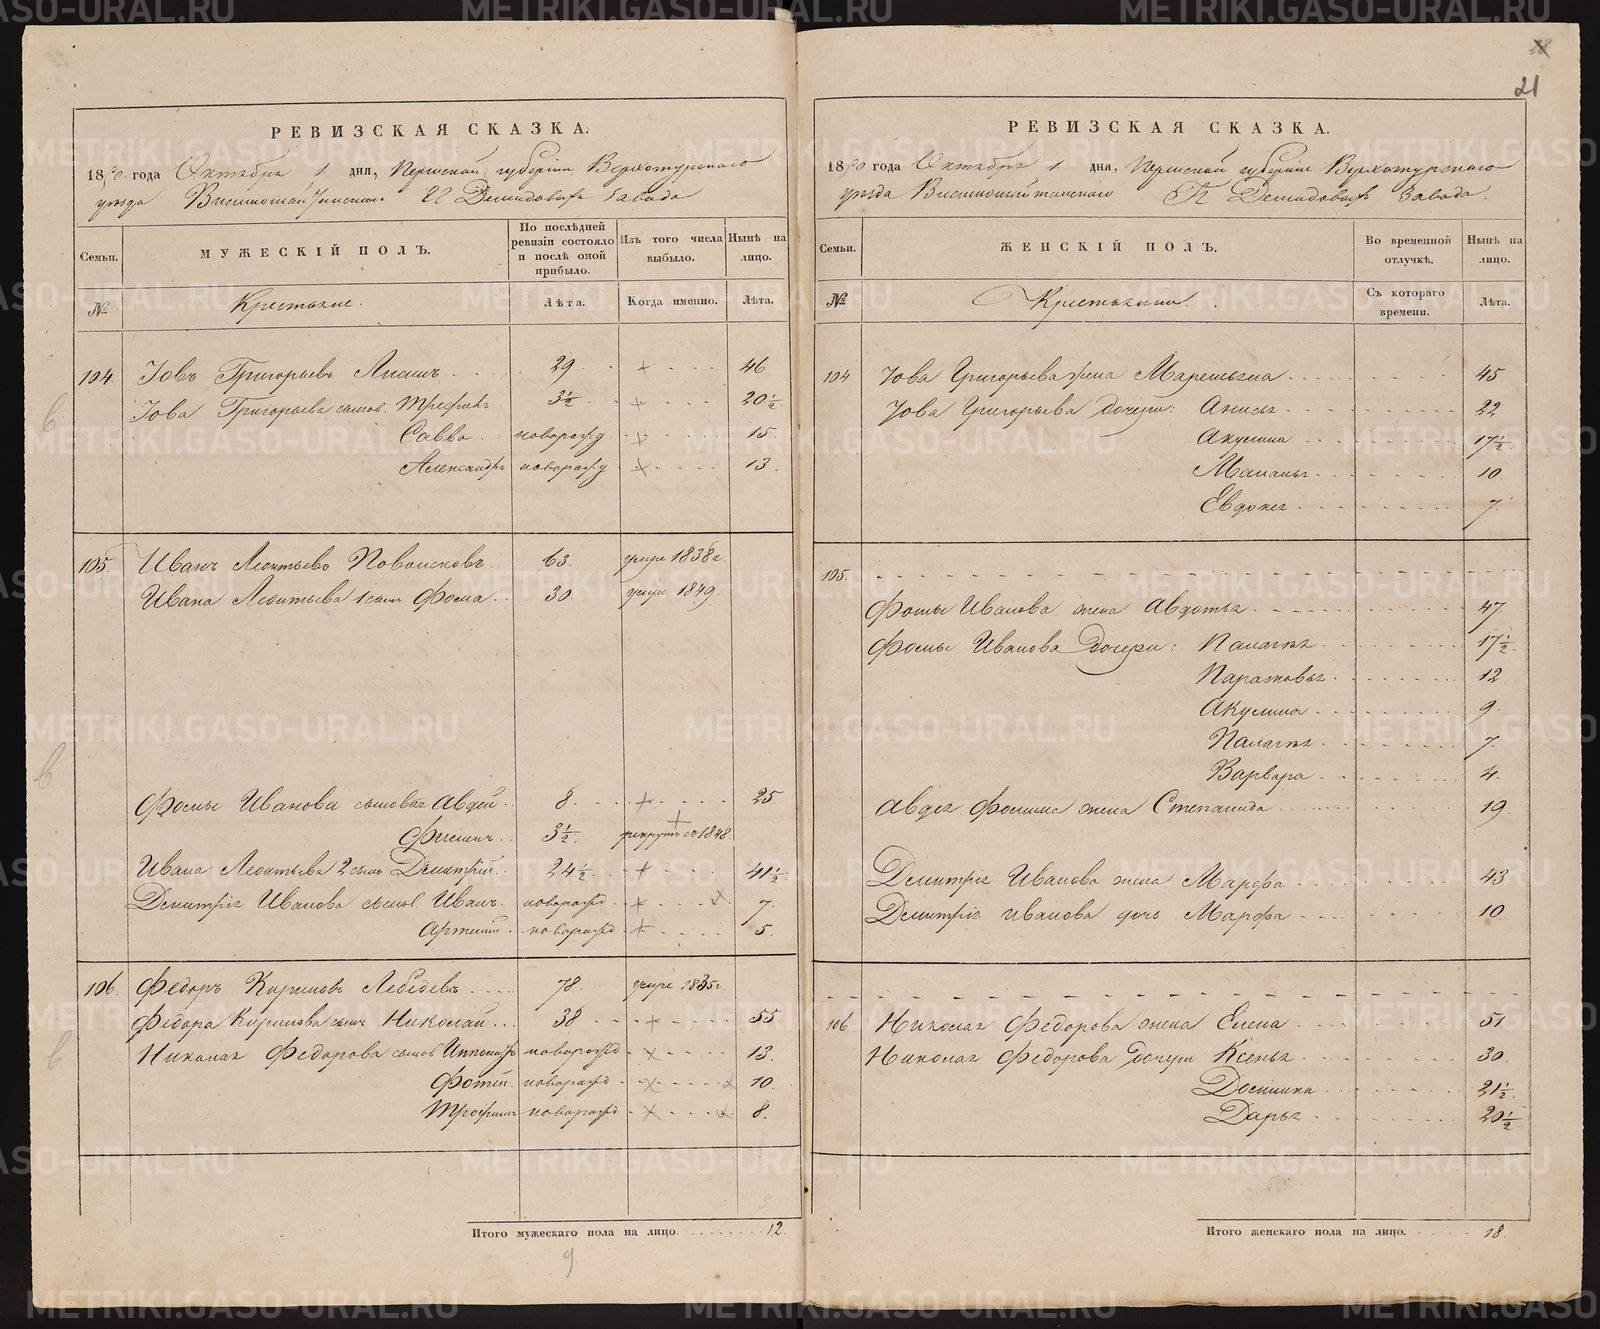 38
21
РЕВИЗСКАЯ СКАЗКА.
1850 года Октября 1 дня, Пермской губернии Верхотурскаго
уезда Висимошайтанскаго Демидовых завода
Семьи. МУЖЕСКІЙ ПОЛЪ. По послѣдней ревизіи состояло и послѣ оной прибыло. Изъ того числа выбыло. Нынѣ на лицо.
№ Крестьяне. Лѣта. Когда именно. Лѣта.
104. Іовъ Григорьевъ 29 + 46
Іова Григорьева сынов. Трефилъ 3½ + 20½
Савва новорожд + 15
Александръ новорожд + 13
105. Иванъ Леонтьевъ 63. умре 1838 г.
Ивана Леонтьева 1 сынъ Фома 30 умре 1849
Фомы Иванова сыновья Авдей 8. + 25
3½ рекрутъ съ 1848
Ивана Леонтьева 2 сынъ Демитрій 24½ + 41½
Демитрія Иванова сынов. Иванъ новорожд + 7.
Артемий новорожд + 5.
106. Федоръ Кориловъ Лебедевъ 78. умре 1835 г.
Федора Корилова сынъ Николай 38 + 55
Николая Федорова сынов Ипполитъ новорожд × 13.
Фотей новорожд × 10
Трофимъ новорожд × 8.
Итого мужескаго пола на лицо. 12.
9
РЕВИЗСКАЯ СКАЗКА.
1850 года Октября 1 дня, Пермской губернии Верхотурскаго
уезда Висимошайтанскаго Гг Демидовыхъ Завода.
Семьи. ЖЕНСКІЙ ПОЛЪ. Во временной отлучкѣ. Нынѣ на лицо.
№ Крестьянки. Съ котораго времени. Лѣта.
104 Іова Григорьева жена Маремьяна 45.
Іова Григорьева дочери: Анисья 22
Акулина 17½
Маланья 10
Евдокея 7.
105.
Фомы Иванова жена Авдотья 47.
Фомы Иванова дочери: Палагея 17½.
Парасковья 12
Акулина 9.
Палагея 7.
Варвара 4.
Авдея Фомина жена Степанида 19
Демитрія Иванова жена Марфа 43
Демитрія Иванова дочь Марфа 10
106 Николая Федорова жена Елена 51
Николая Федорова дочери Ксенья 30.
Домника 21½
Дарья 20½
Итого женскаго пола на лицо. 18.
METRIKI.GASO-URAL.RU